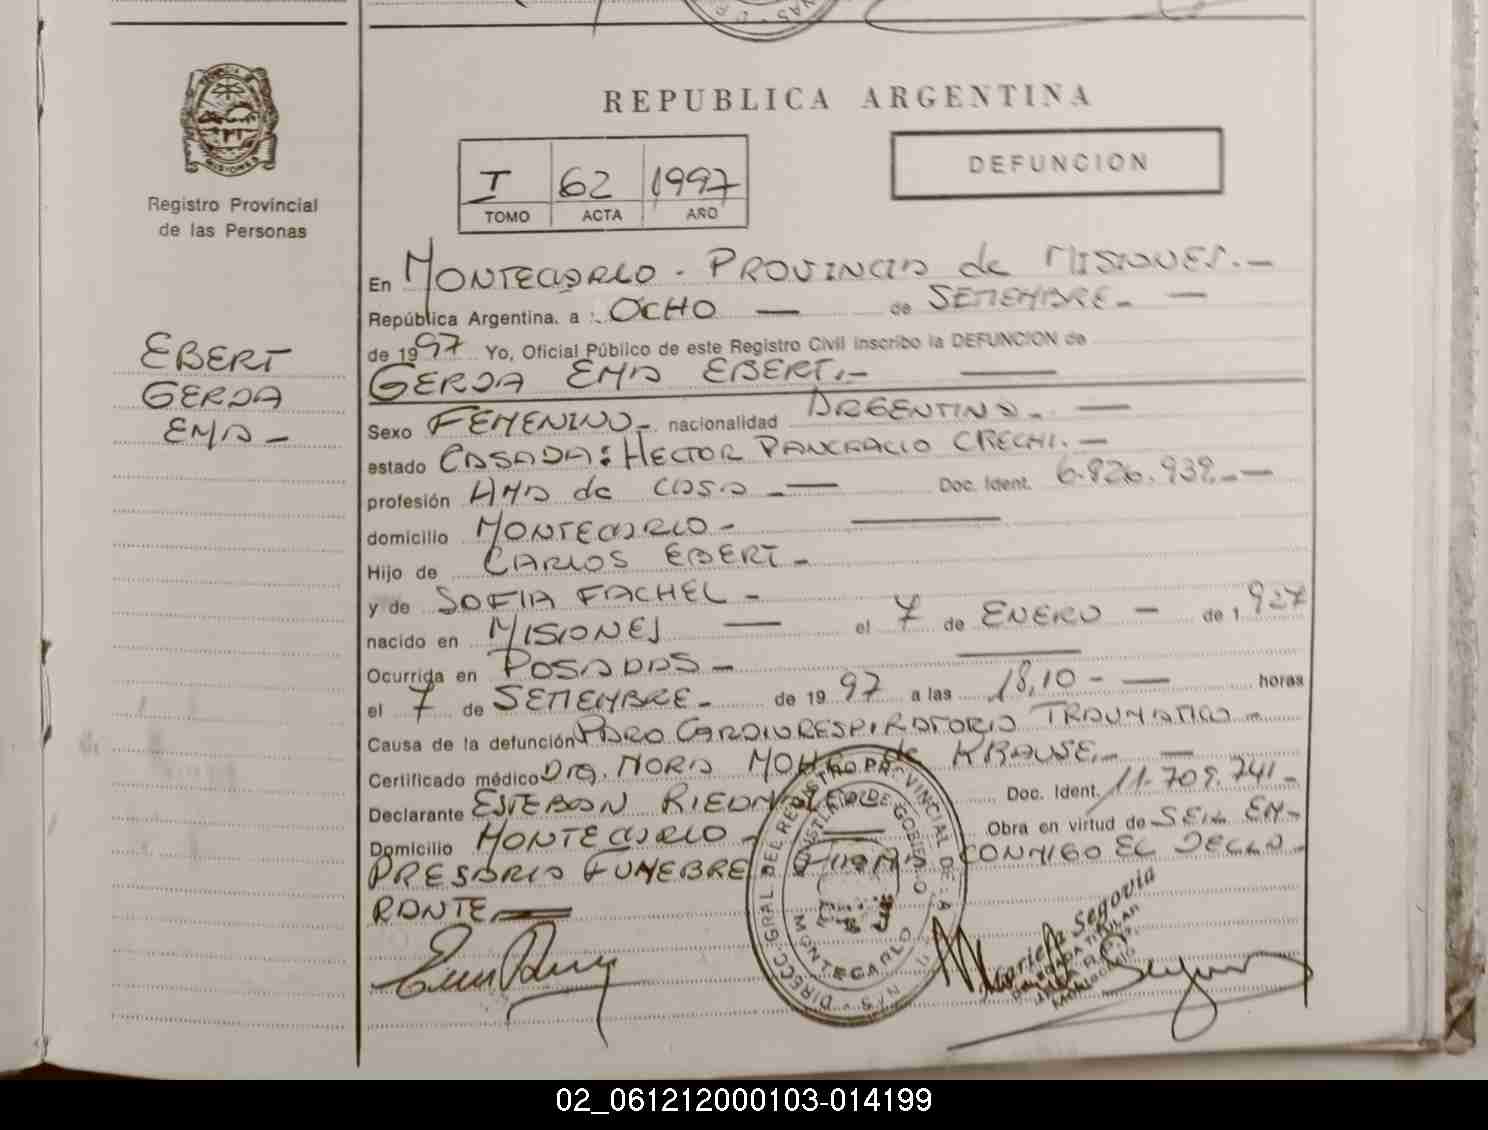 REPUBLICA ARGENTINA
DEFUNCION
I 62 1997
TOMO ACTA AÑO
MISIONES
Registro Provincial
de las Personas
EBERT
GERDA
EMA -
En MONTECARLO - PROVINCIA de MISIONES.-
República Argentina, a OCHO — de SETIEMBRE - —
de 1997 Yo, Oficial Público de este Registro Civil inscribo la DEFUNCION de
GERDA EMA EBERT.- —
Sexo FEMENINO - nacionalidad ARGENTINA - —
estado CASADA: HECTOR PANCRACIO CRECHI. -
profesión AMA de CASA - — Doc. Ident. 6.826.939.- —
domicilio MONTECARLO - —
Hijo de CARLOS EBERT -
y de SOFIA FACHEL -
nacido en MISIONES — el 7 de ENERO - de 1.927
Ocurrida en POSADAS - —
el 7 de SETIEMBRE - de 1997 a las 18,10 - — horas
Causa de la defunción PARO CARDIORESPIRATORIO TRAUMATICO -
Certificado médico Dra. NORA de KRAUSE.- —
Declarante ESTEBAN Doc. Ident. 11.709.741 -
Domicilio MONTECARLO - — Obra en virtud de SER EM-
PRESARIO FUNEBRE FIRMA CONMIGO EL DECLA-
RANTE
DIRECC. GRAL DEL REGISTRO PROVINCIAL DE LAS PERSONAS
MONTECARLO
Mariela Segovia
02_061212000103-014199